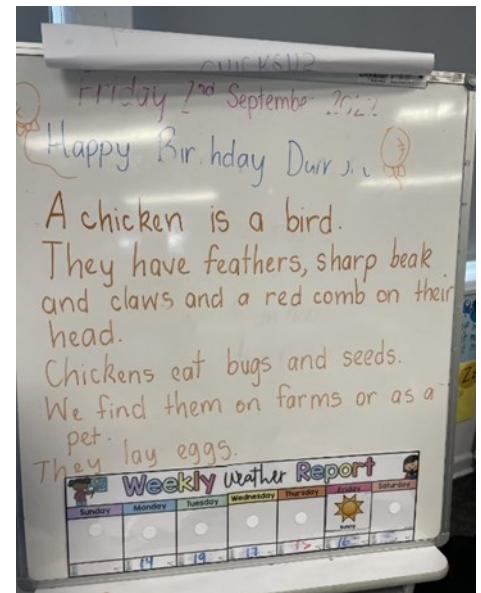 Friday 2nd September 2022
Happy Birthday
A chicken is a bird.
They have feathers, sharp beak
and claws and a red comb on their
head.
Chickens eat bugs and seeds.
We find them on farms or as a
pet.
They lay eggs.
Weekly Weather Report
Sunday Monday Tuesday Wednesday Thursday Friday Saturday
Sunny
14 19 17 16